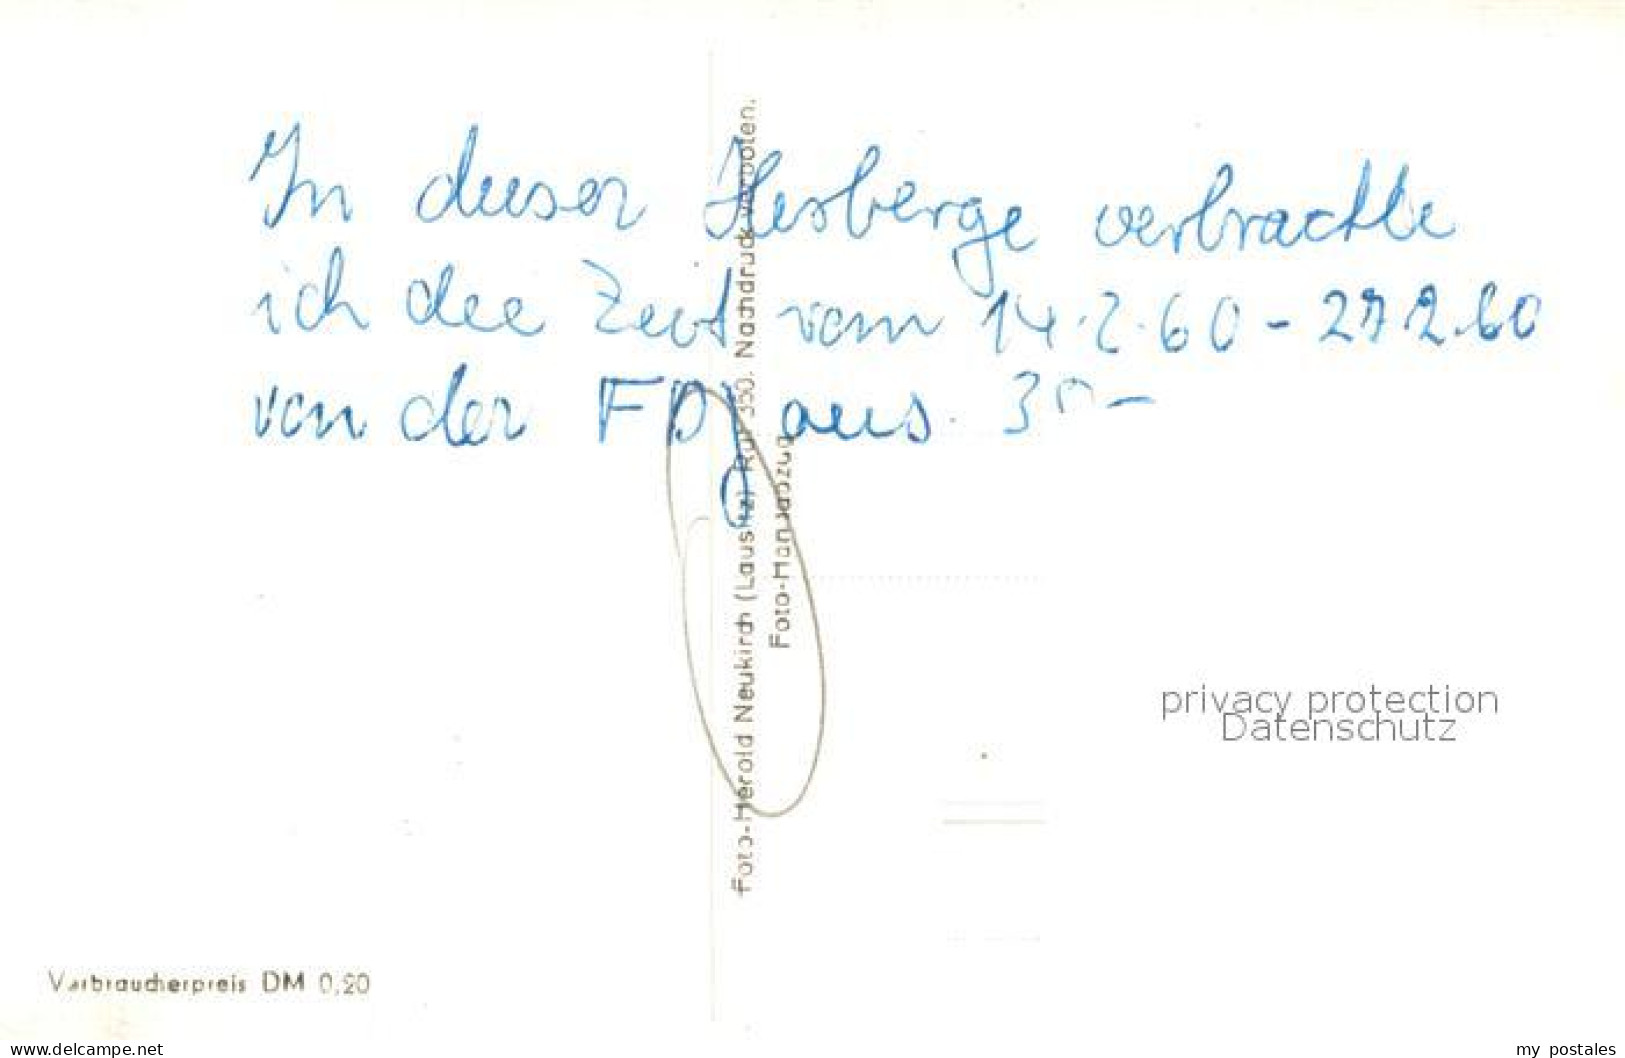 In dieser Herberge verbrachte
ich die Zeit vom 14.2.60 - 27.2.60
von der FDJ aus. 30 -
Foto-Herold Neukirch (Lausitz) Ruf 350. Nachdruck verboten.
Foto-Handabzug
privacy protection
Datenschutz
Verbraucherpreis DM 0,20
www.delcampe.net
my_postales